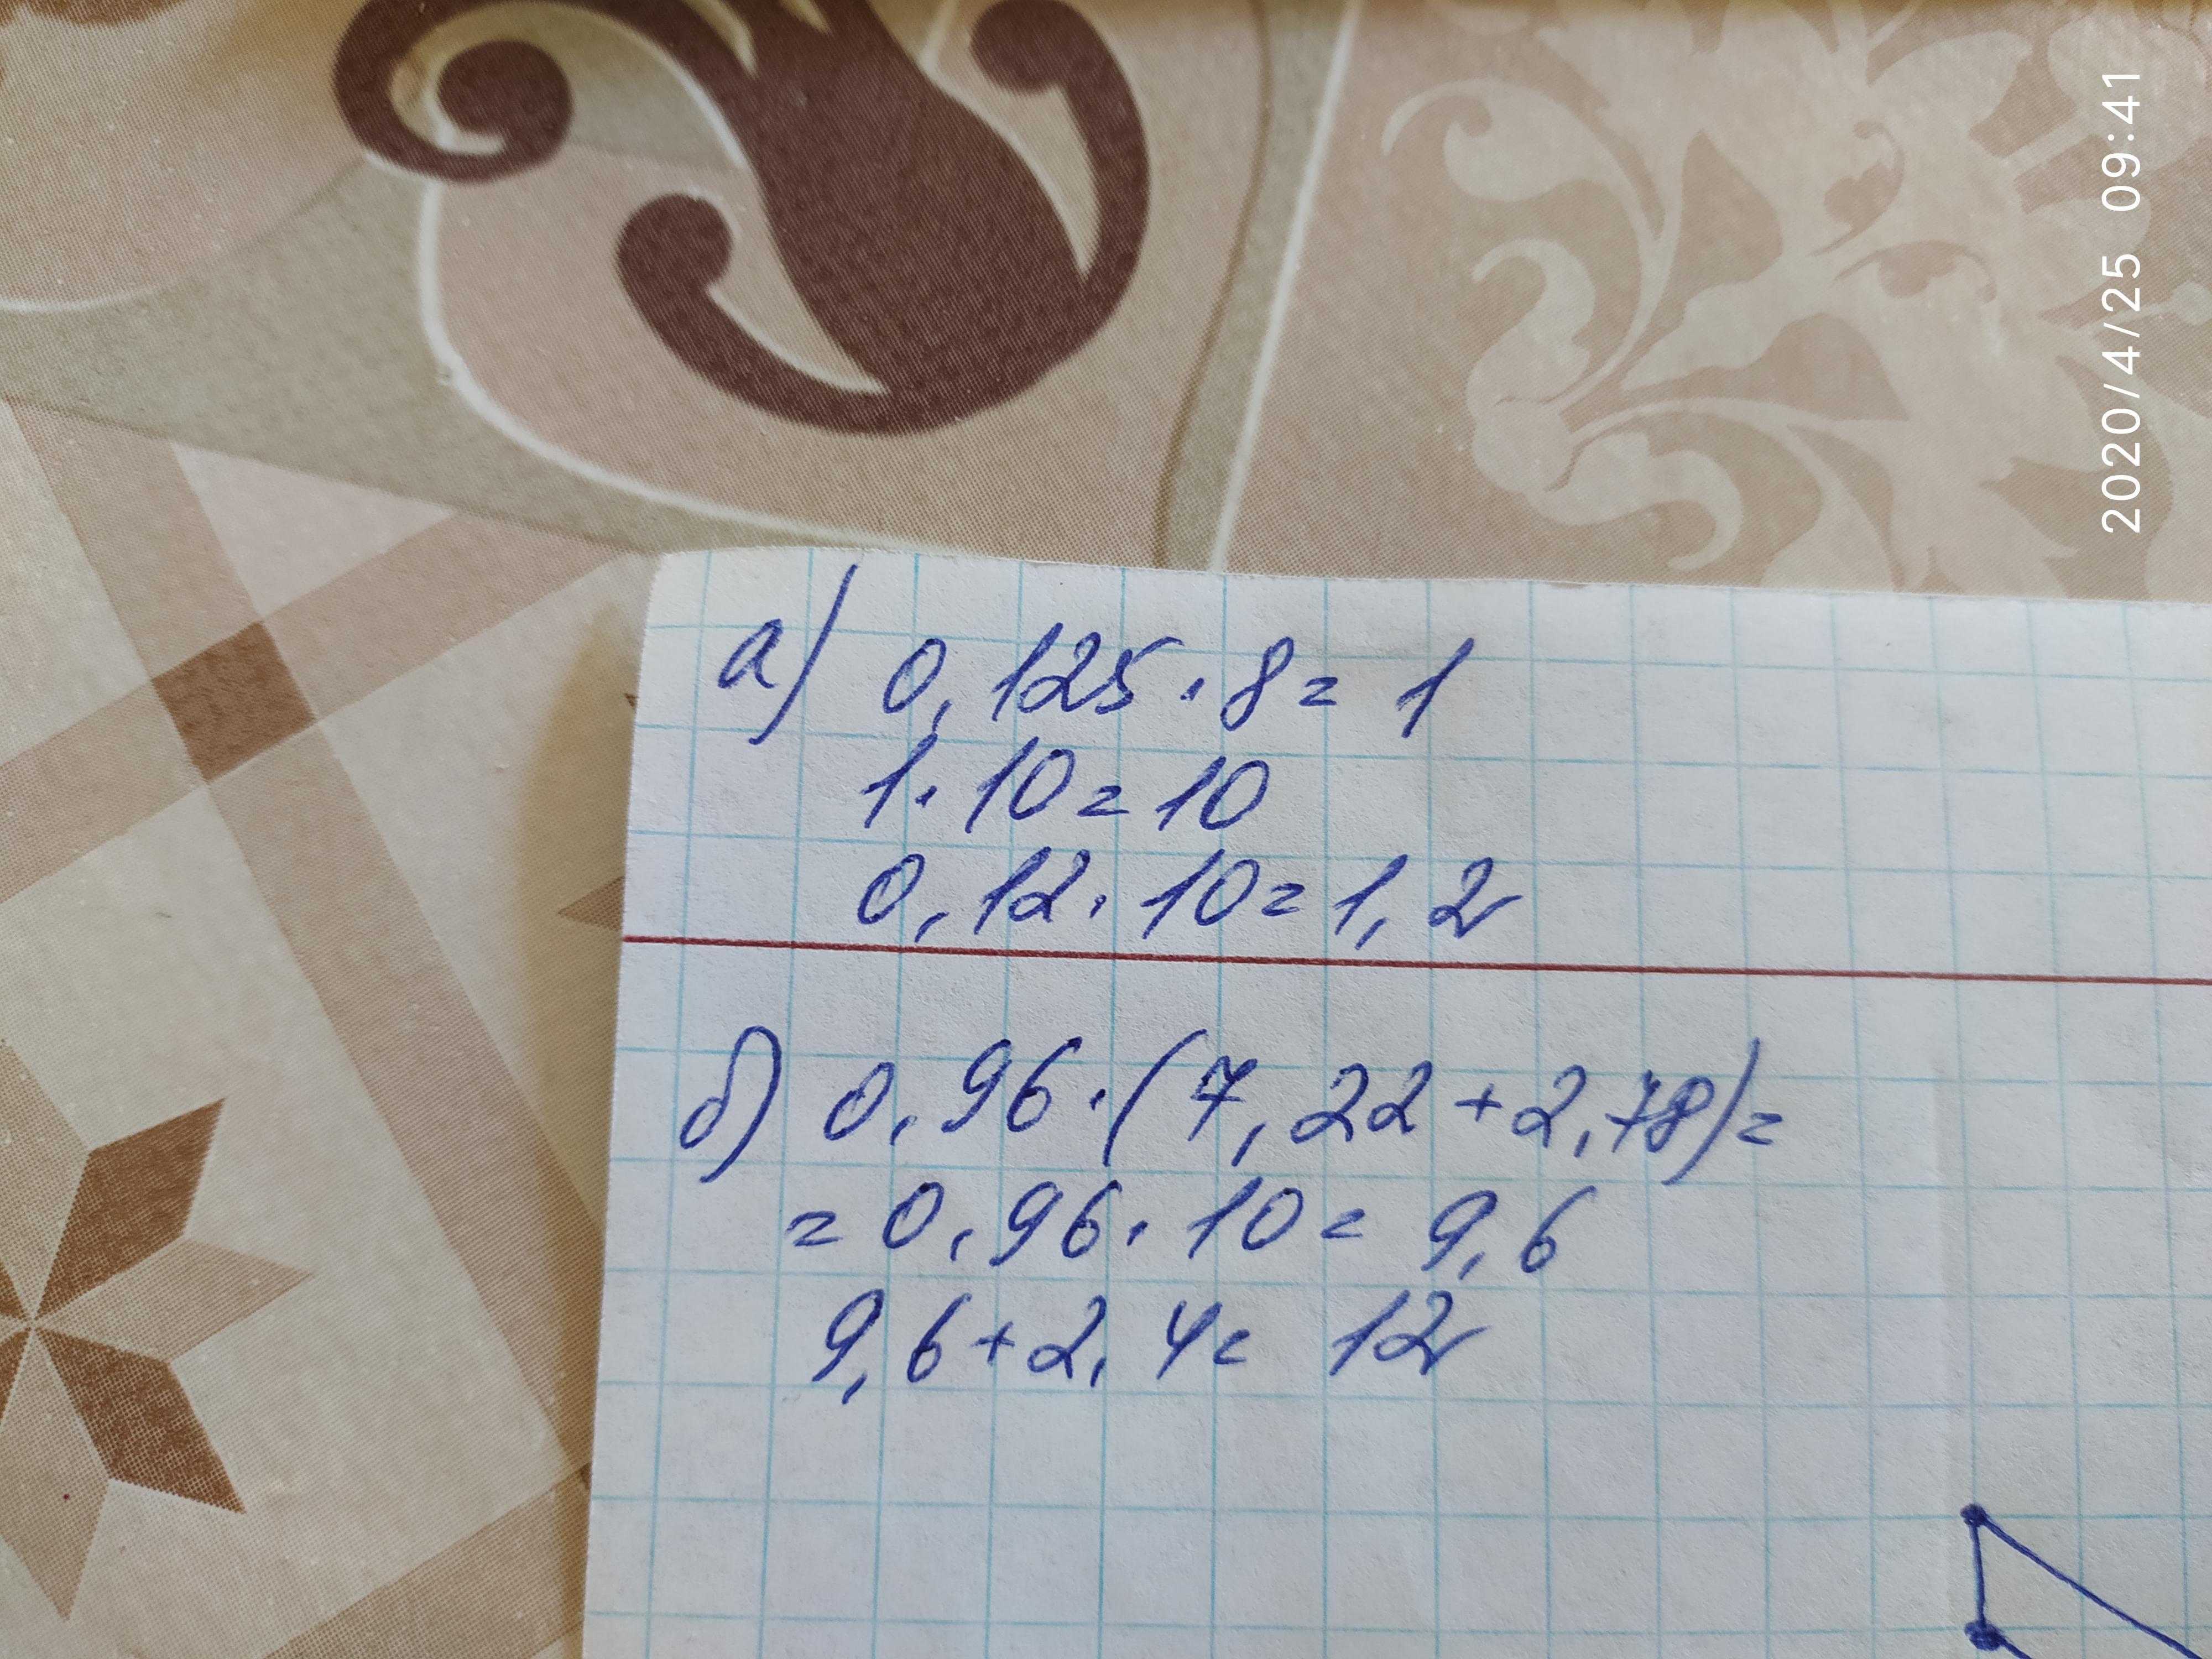 а) 0,125 · 8 = 1
1 · 10 = 10
0,12 · 10 = 1,2
б) 0,96 · (7,22 + 2,78) =
= 0,96 · 10 = 9,6
9,6 + 2,4 = 12
2020/4/25 09:41